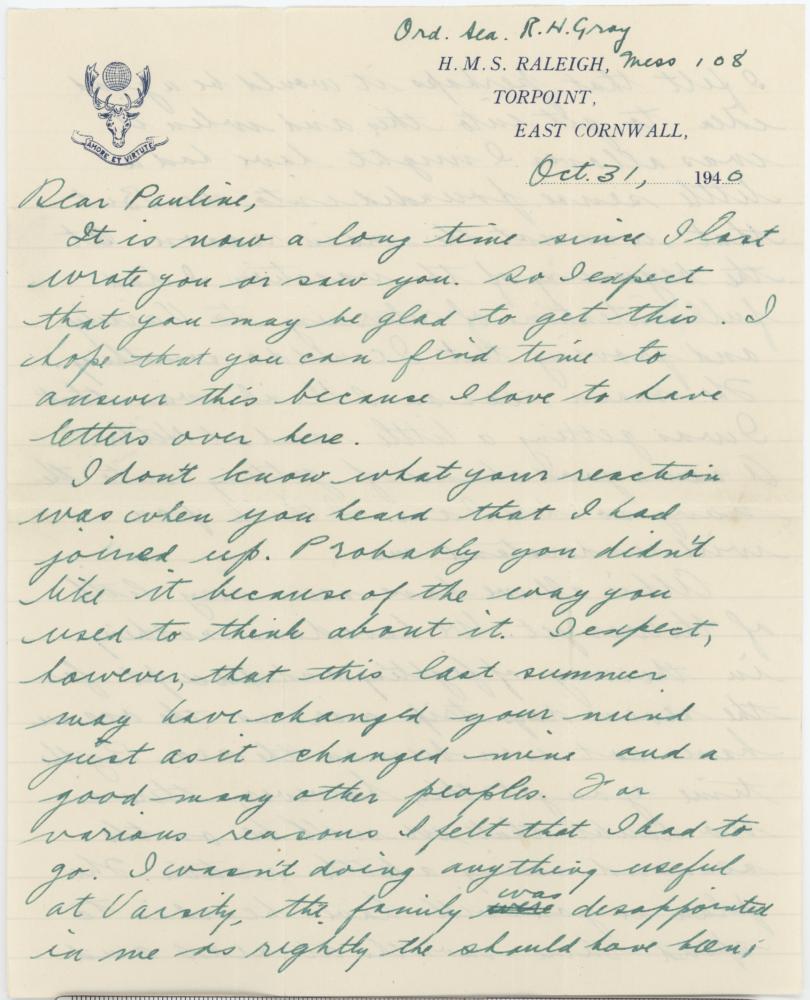 Ord. Sea. R.H. Gray
H.M.S. RALEIGH, Mess 108
TORPOINT,
EAST CORNWALL,
AMORE ET VIRTUTE
Oct. 31, 1940
Dear Pauline,
It is now a long time since I last
wrote you or saw you. So I expect
that you may be glad to get this. I
hope that you can find time to
answer this because I love to have
letters over here.
I don't know what your reaction
was when you heard that I had
joined up. Probably you didn't
like it because of the way you
used to think about it. I expect,
however, that this last summer
may have changed your mind
just as it changed mine and a
good many other peoples. For
various reasons I felt that I had to
go. I wasn't doing anything useful
at Varsity, the family was were desappointed
in me as rightly the should have been;